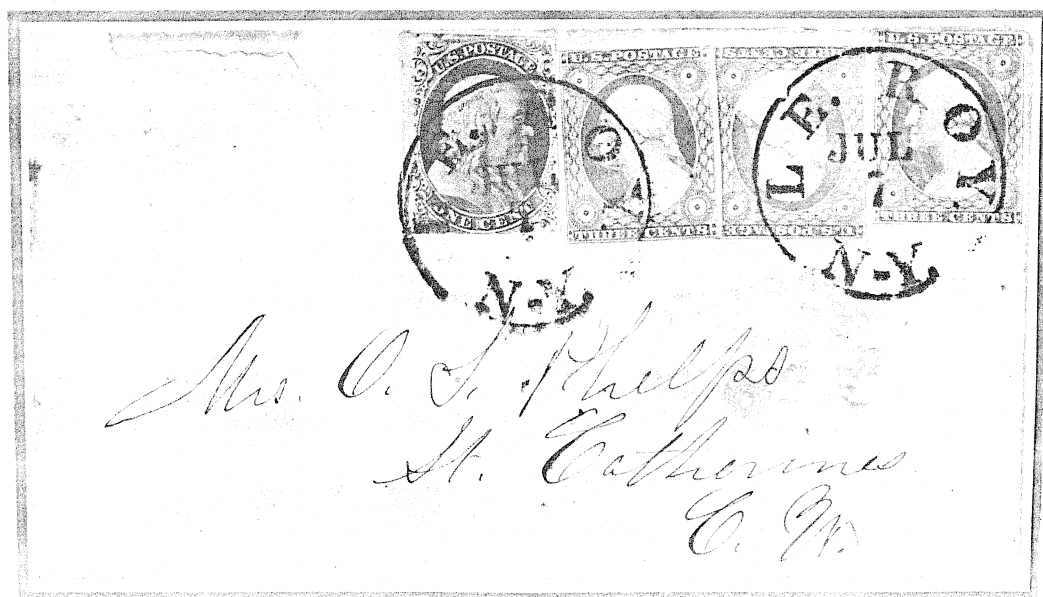 U.S. POSTAGE
ONE CENT
U.S. POSTAGE
THREE CENTS
THREE CENTS
U.S. POSTAGE
U.S. POSTAGE
THREE CENTS
N-Y.
LE. ROY
JUL
7
N-Y.
Mrs. O. S. Phelps
St. Catherines
C. W.